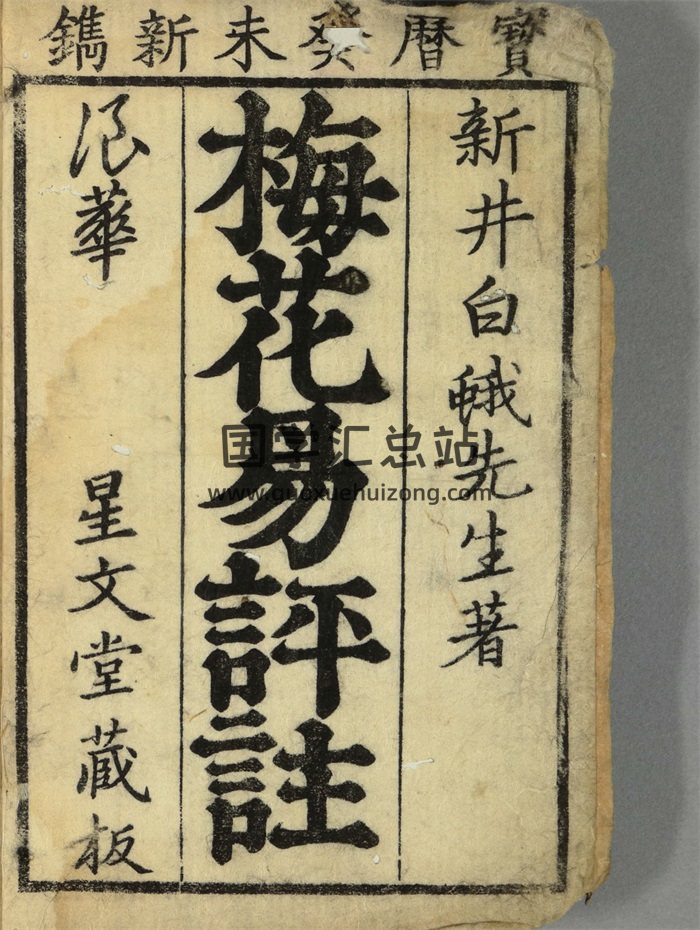 寳曆癸未新鐫
新井白蛾先生著
梅花易評註
浪華 星文堂蔵板
国学汇总站
www.guoxuehuizong.com